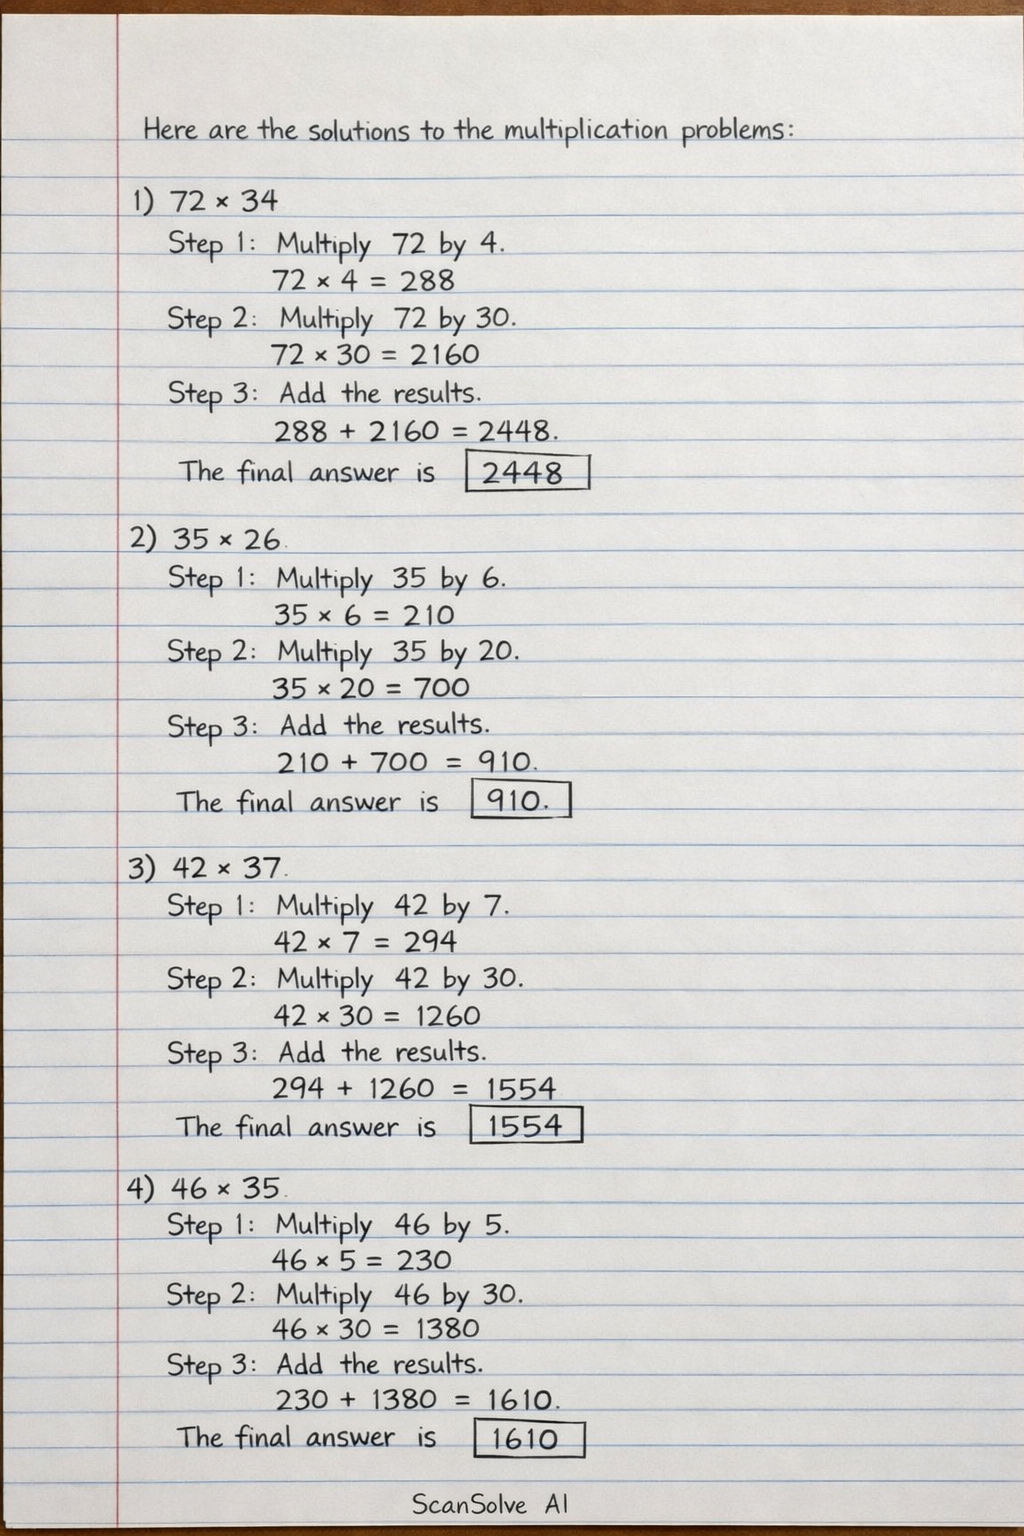 Here are the solutions to the multiplication problems:
1) 72 × 34
Step 1: Multiply 72 by 4.
72 × 4 = 288
Step 2: Multiply 72 by 30.
72 × 30 = 2160
Step 3: Add the results.
288 + 2160 = 2448.
The final answer is 2448
2) 35 × 26.
Step 1: Multiply 35 by 6.
35 × 6 = 210
Step 2: Multiply 35 by 20.
35 × 20 = 700
Step 3: Add the results.
210 + 700 = 910.
The final answer is 910.
3) 42 × 37.
Step 1: Multiply 42 by 7.
42 × 7 = 294
Step 2: Multiply 42 by 30.
42 × 30 = 1260
Step 3: Add the results.
294 + 1260 = 1554
The final answer is 1554
4) 46 × 35.
Step 1: Multiply 46 by 5.
46 × 5 = 230
Step 2: Multiply 46 by 30.
46 × 30 = 1380
Step 3: Add the results.
230 + 1380 = 1610.
The final answer is 1610
ScanSolve AI